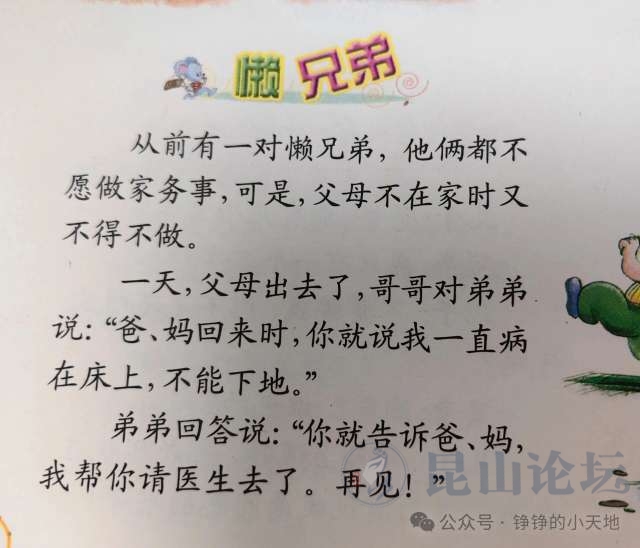 懒兄弟
从前有一对懒兄弟，他俩都不
愿做家务事，可是，父母不在家时又
不得不做。
一天，父母出去了，哥哥对弟弟
说：“爸、妈回来时，你就说我一直病
在床上，不能下地。”
弟弟回答说：“你就告诉爸、妈，
我帮你请医生去了。再见！”
昆山论坛
公众号·铮铮的小天地